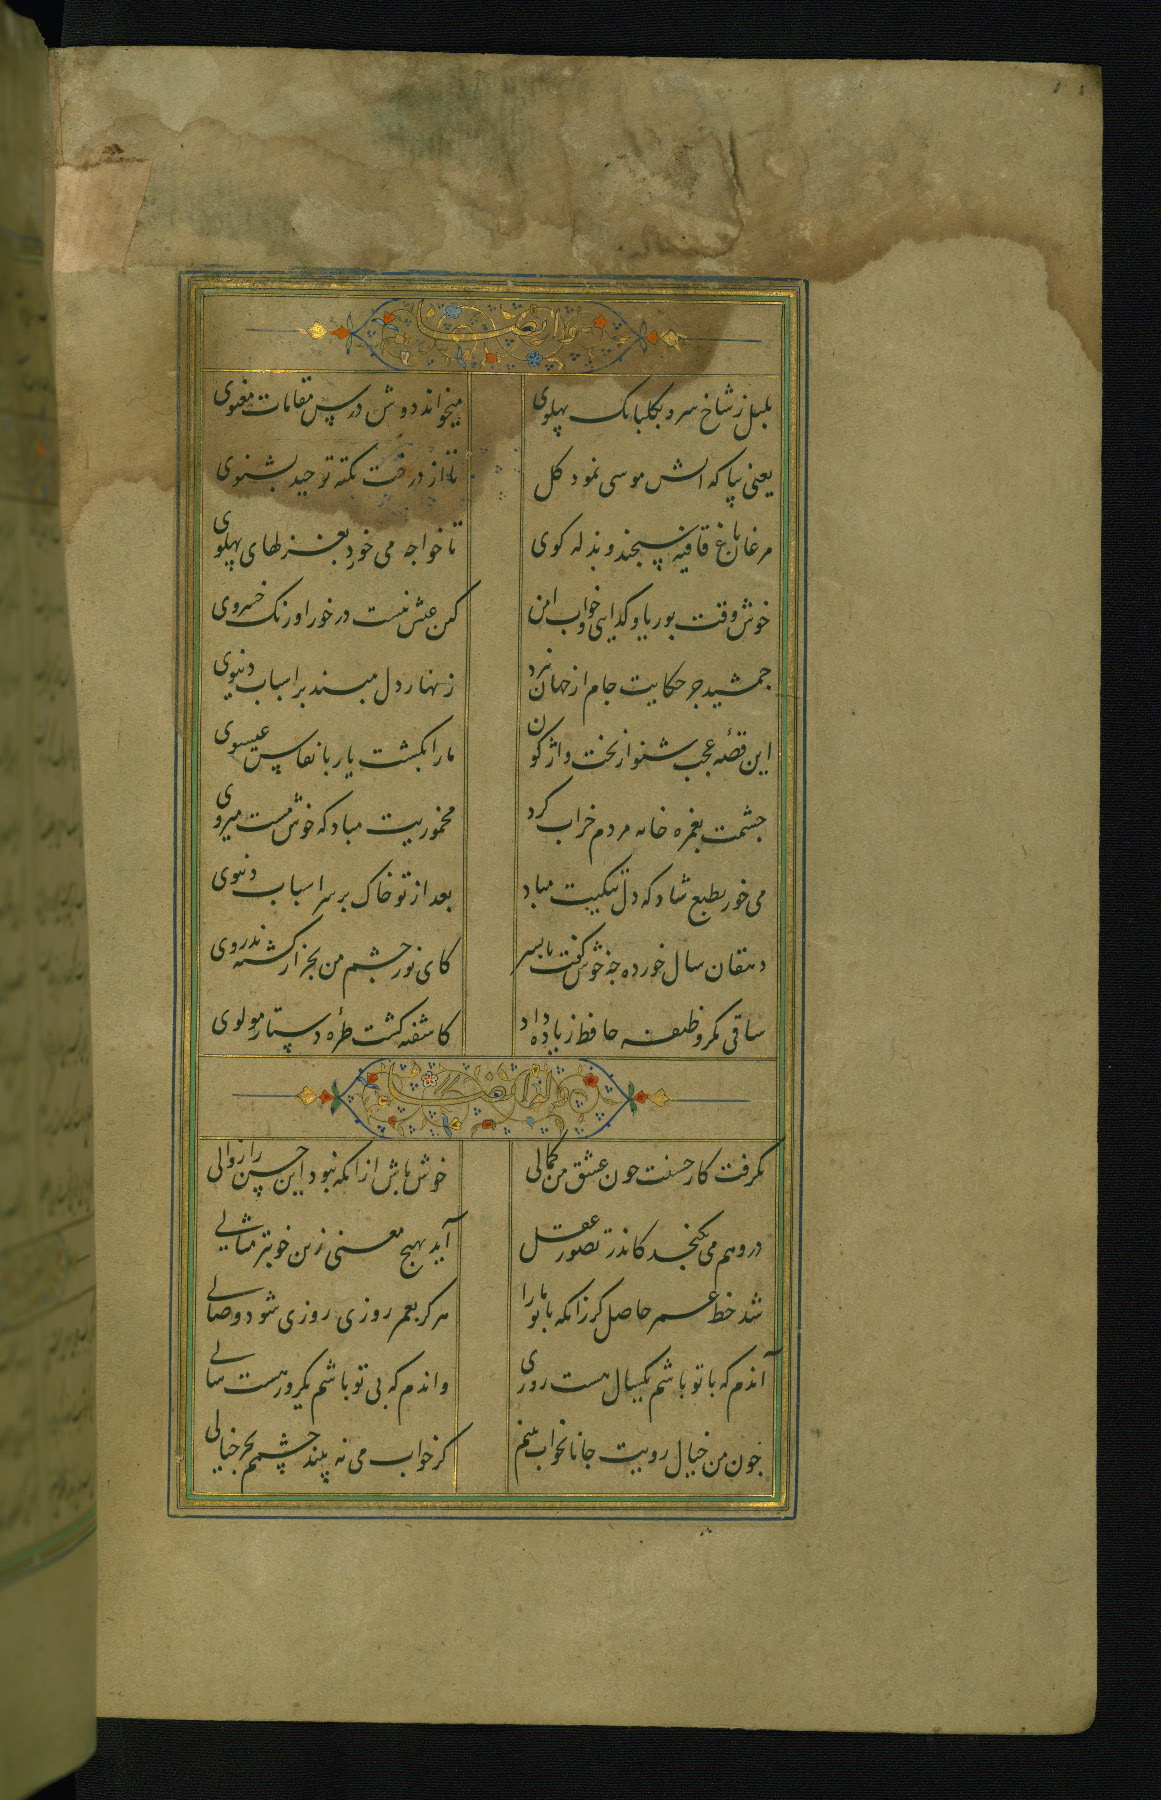 وله ایضا
بلبل ز شاخ سرو بکلبانک پهلوی میخواند دوش درس مقامات معنوی
یعنی بیا که اتش موسی نمود کل تا از درخت نکته توحید بشنوی
مرغان باغ قافیه سنجند و بذله کوی تا خواجه می خورد بغزلهای پهلوی
خوش وقت بوریا و کدایی و خواب امن کین عیش نیست درخور اورنک خسروی
جمشید جز حکایت جام از جهان نبرد زنهار دل مبند بر اسباب دنیوی
این قصهٔ عجب شنو از بخت واژکون ما را بکشت یار بانفاس عیسوی
چشمت بغمزه خانه مردم خراب کرد مخموریت مباد که خوش مست میروی
می خور بطبع شاد که دل تنکیت مباد بعد از تو خاک بر سر اسباب دنیوی
دهقان سال خورده چه خوش کفت با پسر کای نور چشم من بجز از کشته ندروی
ساقی مکر وظیفه حافظ زیاده داد کاشفته کشت طرهٔ دستار مولوی
وله ایضا
بکرفت کار حسنت چون عشق من کمالی خوش باش از انکه نبود این حسن را زوالی
در وهم می نکنجد کاندر تصور عقل آید بهیچ معنی زین خوبتر مثالی
شد حظ عمر حاصل کر زانکه با تو ما را هرکز بعمر روزی روزی شود وصالی
آندم که با تو باشم یکسال هست روزی واندم که بی تو باشم یکروز هست سالی
چون من خیال رویت جانا بخواب بینم کز خواب می نه بیند چشمم بجز خیالی